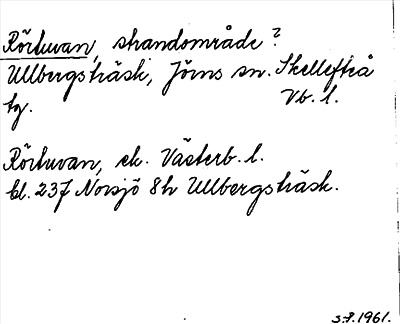 Rörtuvan, strandområde?
Ullbergsträsk, Jörns sn. Skellefteå
tg. Vb. l.
Rörtuvan, ek. Västerb. l.
bl. 237 Norsjö 8h Ullbergsträsk.
3.8.1961.